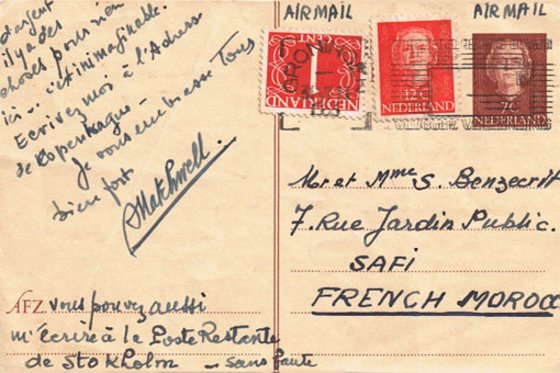 d'argent
il y a des
choses pour rien
ici... c'est inimaginable.
Ecrivez moi à l'Adress
de Kopenhague -
Je vous embrasse Tous
bien fort
AFZ vous pouvez aussi
m'écrire à la Poste Restante
de Stokholm - sans faute
AIRMAIL
AIRMAIL
1 CENT
NEDERLAND
GRONINGEN
12 C
NEDERLAND
7 C
NEDERLAND
Mr et Mme S. Benzecrit
7. Rue Jardin Public.
SAFI
FRENCH MOROCC